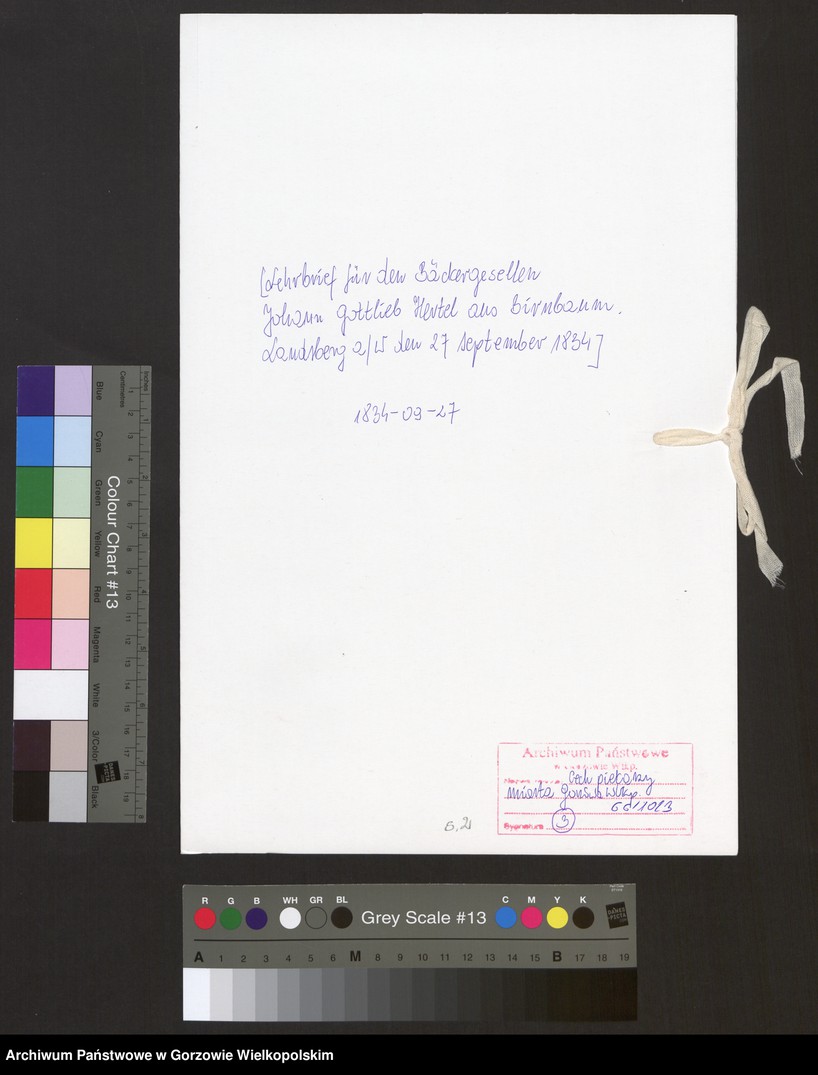 [Lehrbrief für den Bäckergesellen
Johann Gottlieb Hertel aus Birnbaum.
Landsberg a/W den 27 September 1834]
1834-09-27
Archiwum Państwowe
w Wlkp.
Cech piekarzy
miasta Wlkp.
66/1023
Sygnatura 3
Inches
Centimetres
Colour Chart #13
Blue
Cyan
Green
Yellow
Red
Magenta
White
3/Color
Black
R G B WH GR BL Grey Scale #13 C M Y K
DANES PICTA
A 1 2 3 4 5 6 M 8 9 10 11 12 13 14 15 B 17 18 19
Archiwum Państwowe w Gorzowie Wielkopolskim